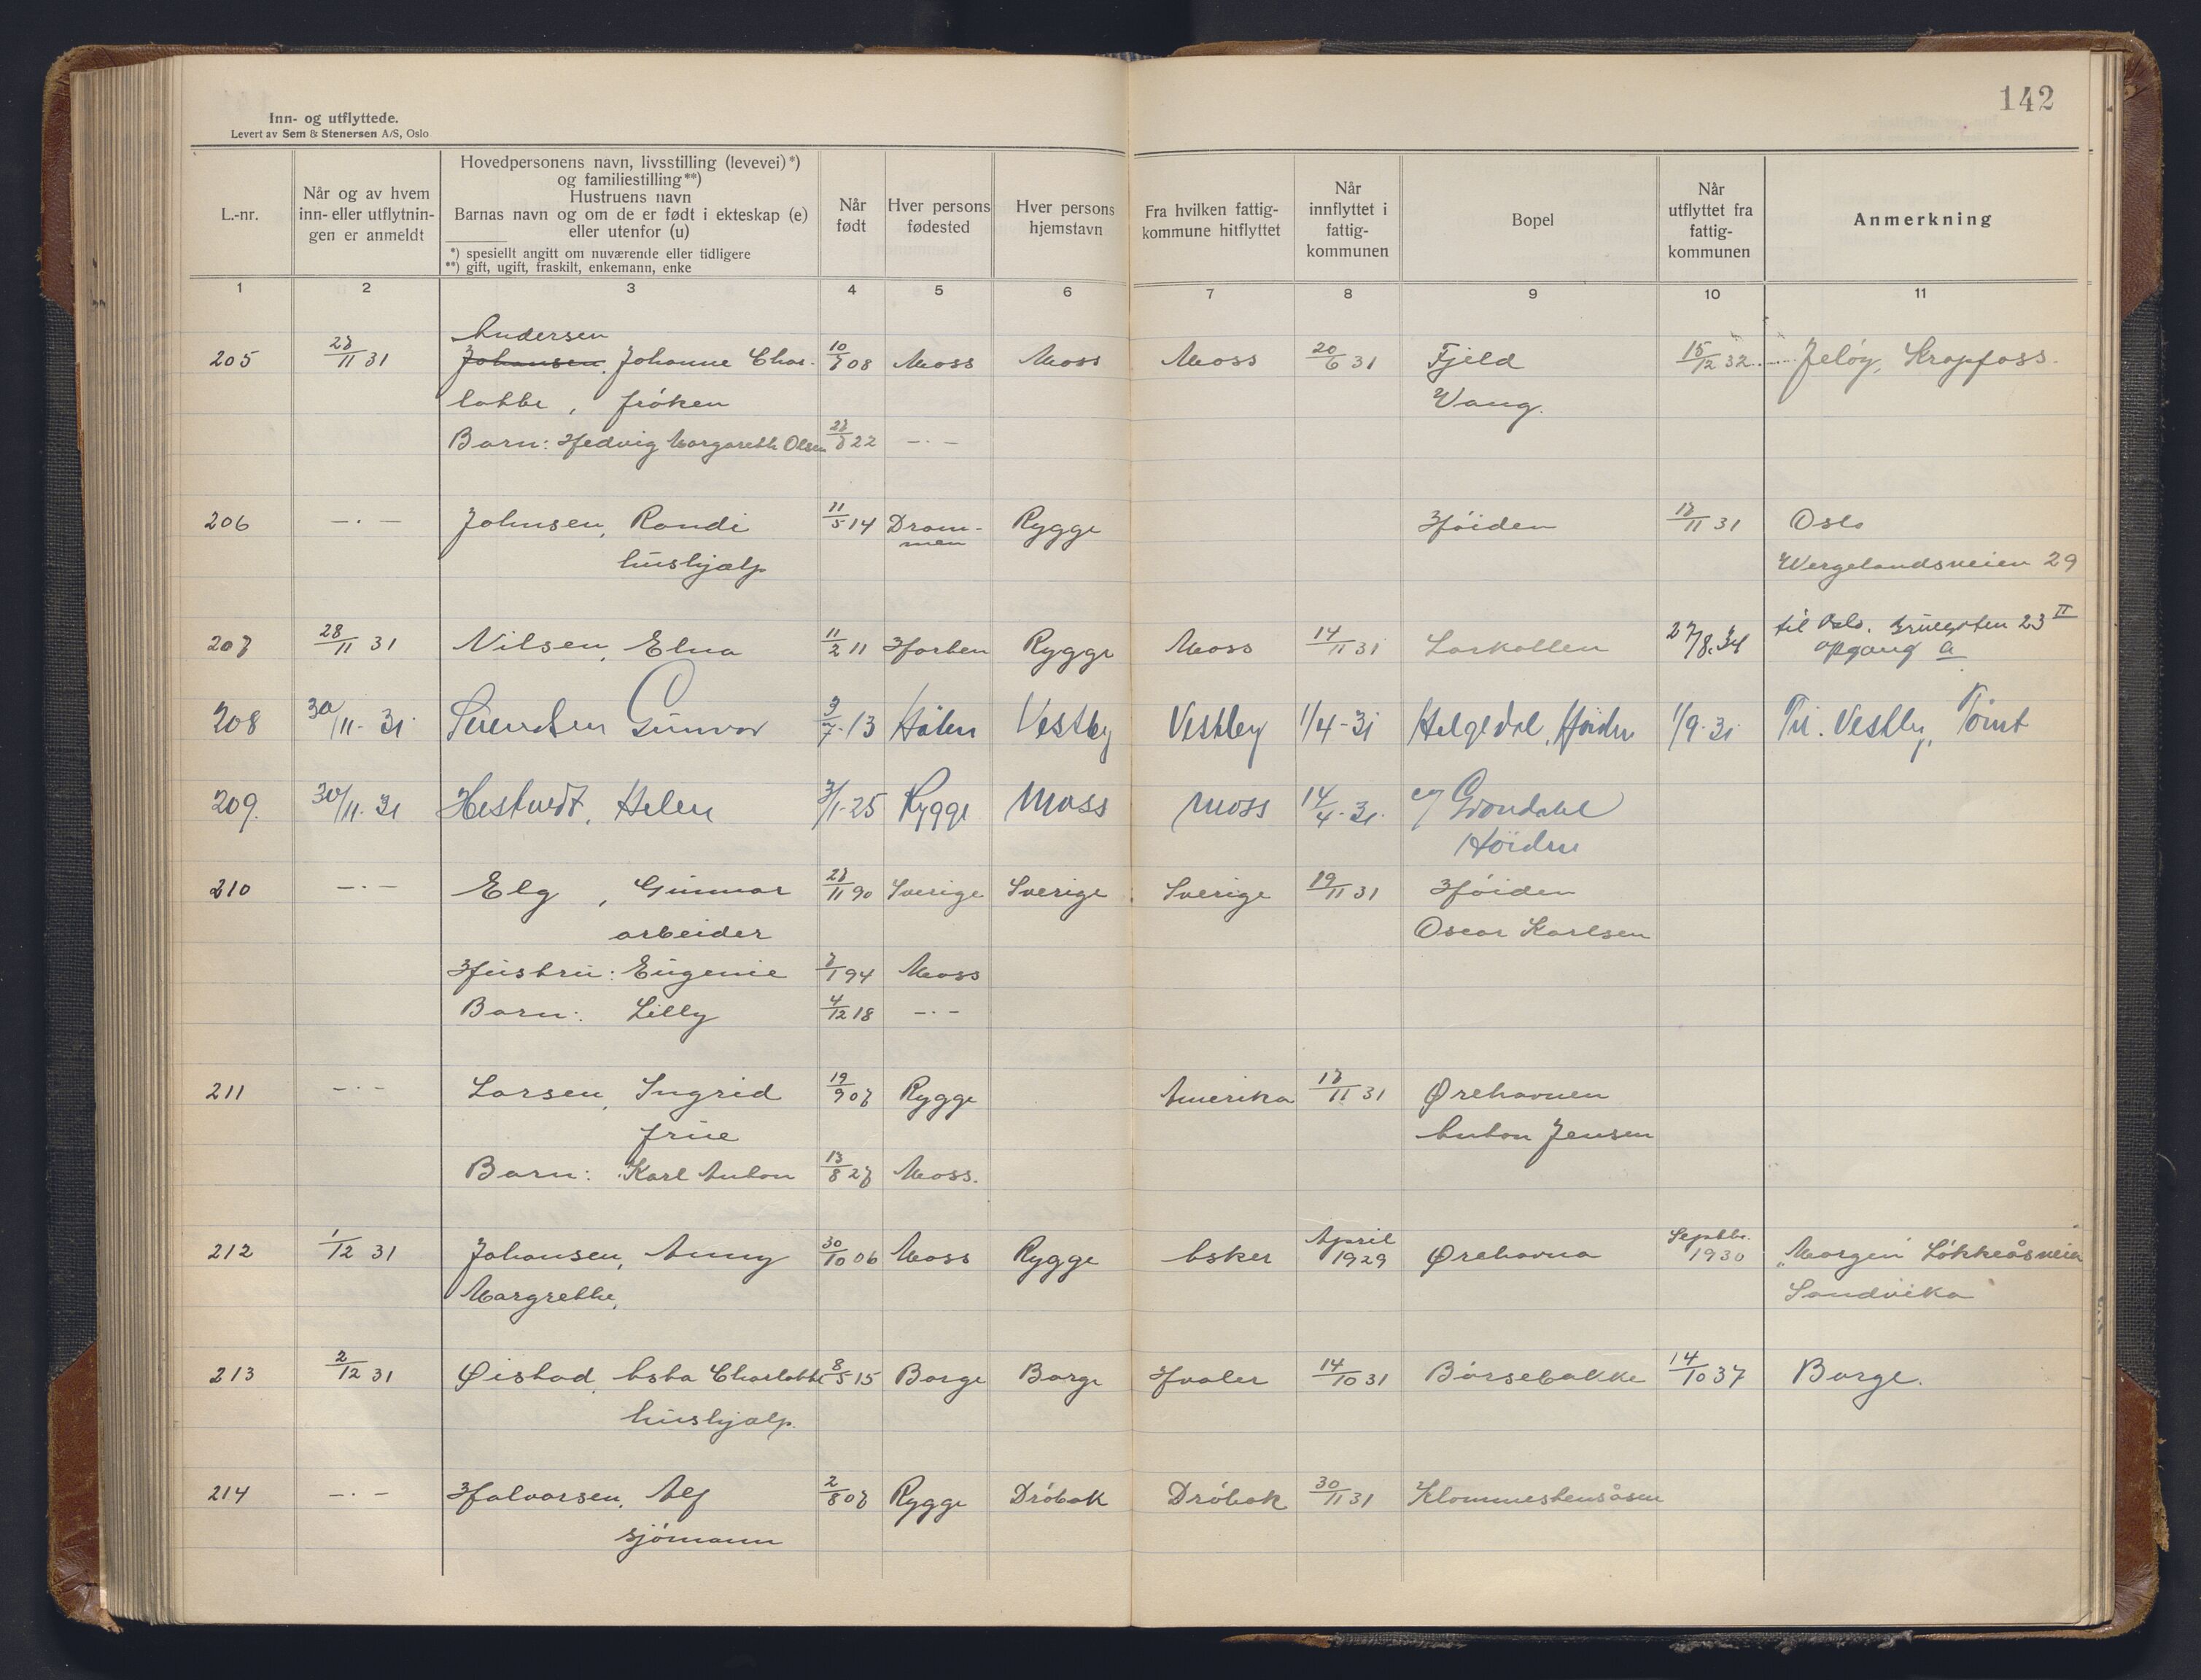 142
Inn- og utflyttede.
Levert av Sem & Stenersen A/S, Oslo
L.-nr.
Når og av hvem
inn- eller utflytnin-
gen er anmeldt
Hovedpersonens navn, livsstilling (levevei)*)
og familiestilling**)
Hustruens navn
Barnas navn og om de er født i ekteskap (e)
eller utenfor (u)
*) spesiellt angitt om nuværende eller tidligere
**) gift, ugift, fraskilt, enkemann, enke
Når
født
Hver persons
fødested
Hver persons
hjemstavn
Fra hvilken fattig-
kommune hitflyttet
Når
innflyttet i
fattig-
kommunen
Bopel
Når
utflyttet fra
fattig-
kommunen
Anmerkning
1 2 3 4 5 6 7 8 9 10 11
Andersen
205 27/11 31 Johansen, Johanne Char- 10/7 08 Moss Moss Moss 20/6 31 Fjeld 15/12 32 Jeløy, Krapfoss.
lotte, frøken Vang.
Barn: Hedvig Margareth Olsen 27/8 22 —·—
206 —·— Johnsen, Randi 11/5 14 Dram- Rygge Høiden 17/11 31 Oslo
men
hushjælp Wergelandsveien 29
207 28/11 31 Nilsen, Elna 11/2 11 Horten Rygge Moss 14/11 31 Larkollen 27/8.34 til Oslo. 23 II
opgang a
208 30/11-31 Svendsen Gunvor 9/7-13 Hølen Vestby Vestby 1/4-31 Helgedal, Høiden 1/9-31 Til. Vestby,
209. 30/11-31 Hestvedt, Helen 3/1-25 Rygge Moss Moss 14/4-31 Grøndahl
Høiden
210 —·— Elg, Gunnar 27/11 90 Sverige Sverige Sverige 19/11 31 Høiden
arbeider Oscar Karlsen
Hustru: Eugenie 7/1 94 Moss
Barn: Lilly 4/12 18 —·—
211 —·— Larsen, Ingrid 19/9 07 Rygge Amerika 17/11 31 Ørehavnen
frue Anton Jensen
Barn: Karl Anton 13/8 27 Moss.
212 1/12 31 Johansen, Anny 30/10 06 Moss Rygge Asker April 1929 Ørehavna Septbr. 1930 "Margen" Løkkeåsveien
Margrethe, Sandvika
213 2/12 31 Øistad, Asta Charlotte 8/5 15 Borge Borge Hvaler 14/10 31 Børsebakke 14/10 37 Borge.
hushjælp.
214 —·— Halvorsen, Alf 2/8 07 Rygge Drøbak Drøbak 30/11 31 Klommestensåsen
sjømann